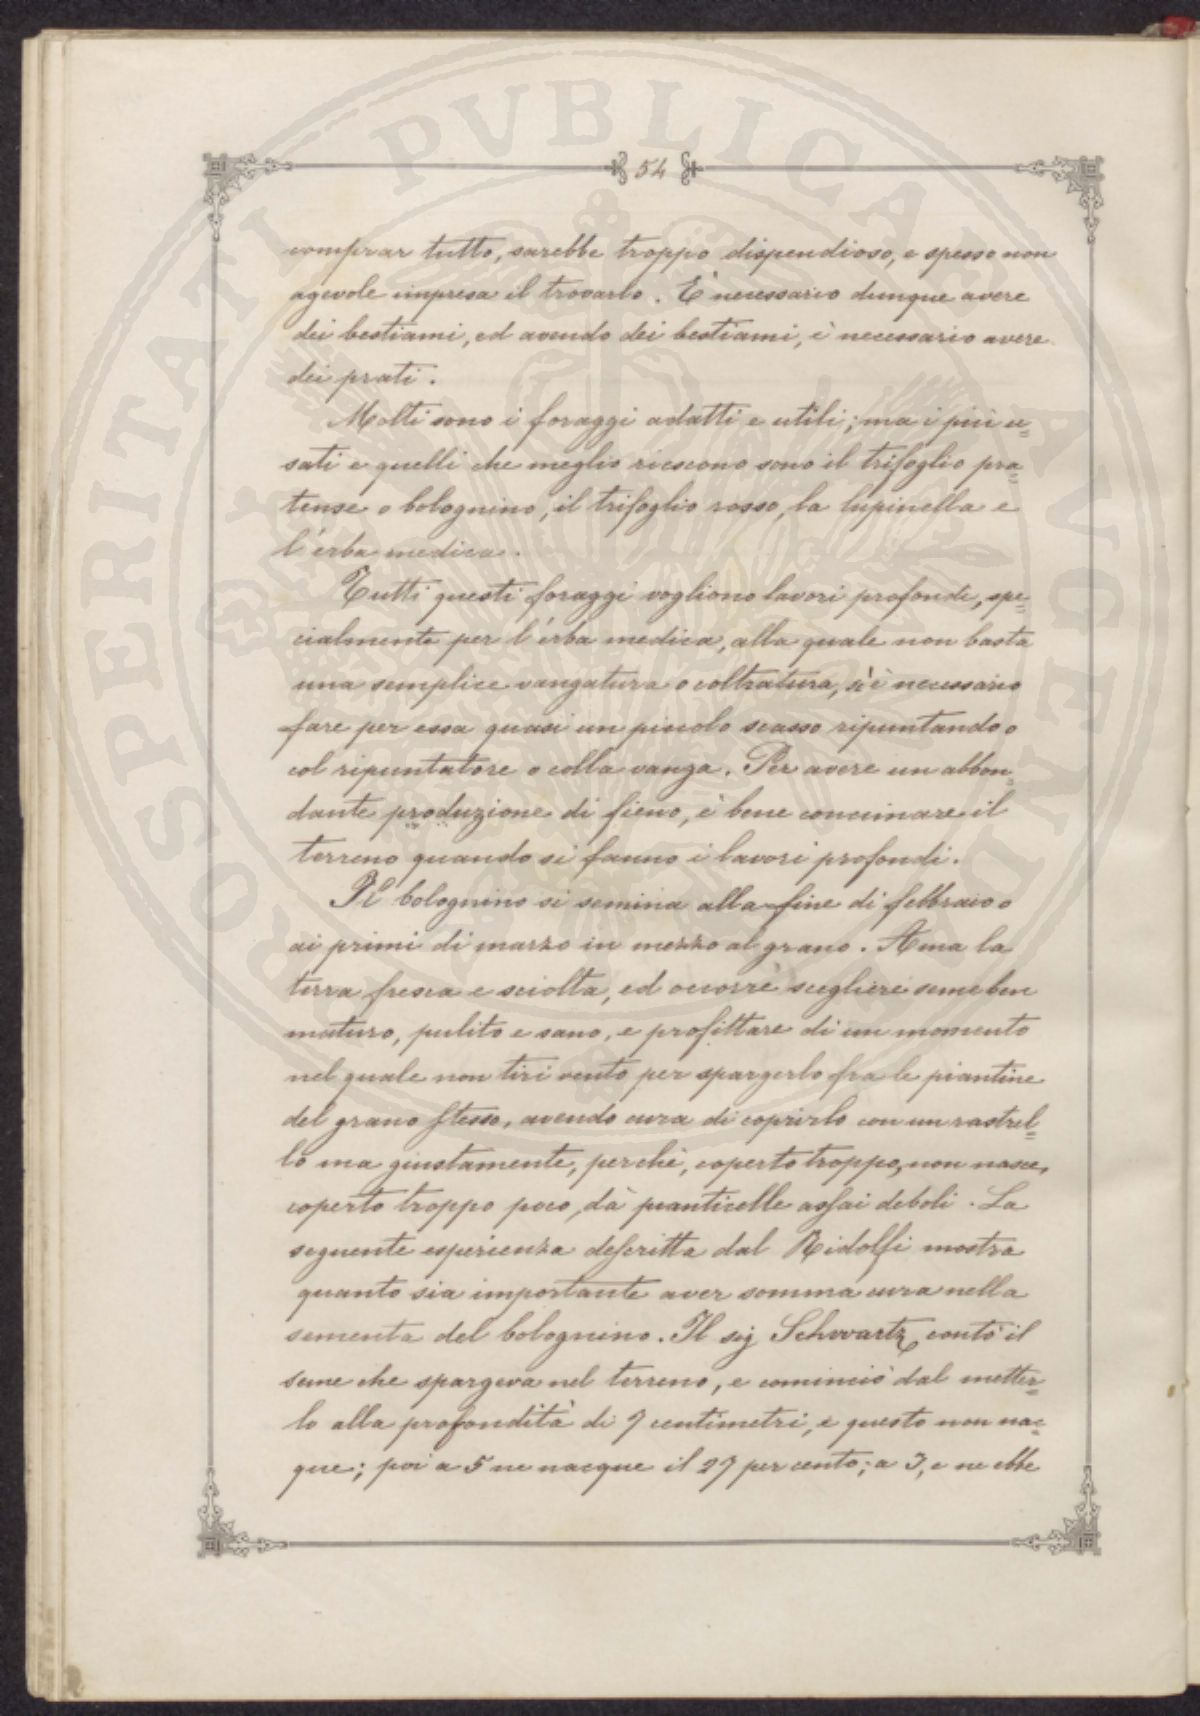 54
comprar tutto, sarebbe troppo dispendioso, e spesso non
agevole impresa il trovarlo. È necessario dunque avere
dei bestiami, ed avendo dei bestiami, è necessario avere
dei prati.
Molti sono i foraggi adatti e utili; ma i più u=
sati e quelli che meglio riescono sono il trifoglio pra=
tense o bolognino, il trifoglio rosso, la lupinella e
l'erba medica.
Tutti questi foraggi vogliono lavori profondi, spe=
cialmente per l'erba medica, alla quale non basta
una semplice vangatura o coltratura, sì è necessario
fare per essa quasi un piccolo scasso ripuntando o
col ripuntatore o colla vanga. Per avere un abbon=
dante produzione di fieno, è bene concimare il
terreno quando si fanno i lavori profondi.
Il bolognino si semina alla fine di febbraio o
ai primi di marzo in mezzo al grano. Ama la
terra fresca e sciolta, ed occorrè scegliere seme ben
maturo, pulito e sano, e profittare di un momento
nel quale non tiri vento per spargerlo fra le piantine
del grano stesso, avendo cura di coprirlo con un rastrel=
lo ma giustamente, perchè, coperto troppo, non nasce,
coperto troppo poco, dà pianticelle assai deboli. La
seguente esperienza descritta dal Ridolfi mostra
quanto sia importante aver somma cura nella
sementa del bolognino. Il sig Schwartz contò il
seme che spargeva nel terreno, e cominciò dal metter=
lo alla profondità di 7 centimetri, e questo non nac=
que; poi a 5 ne nacque il 27 per cento; a 3, e ne ebbe
PROSPERITATI PVBLICAE AVGENDAE